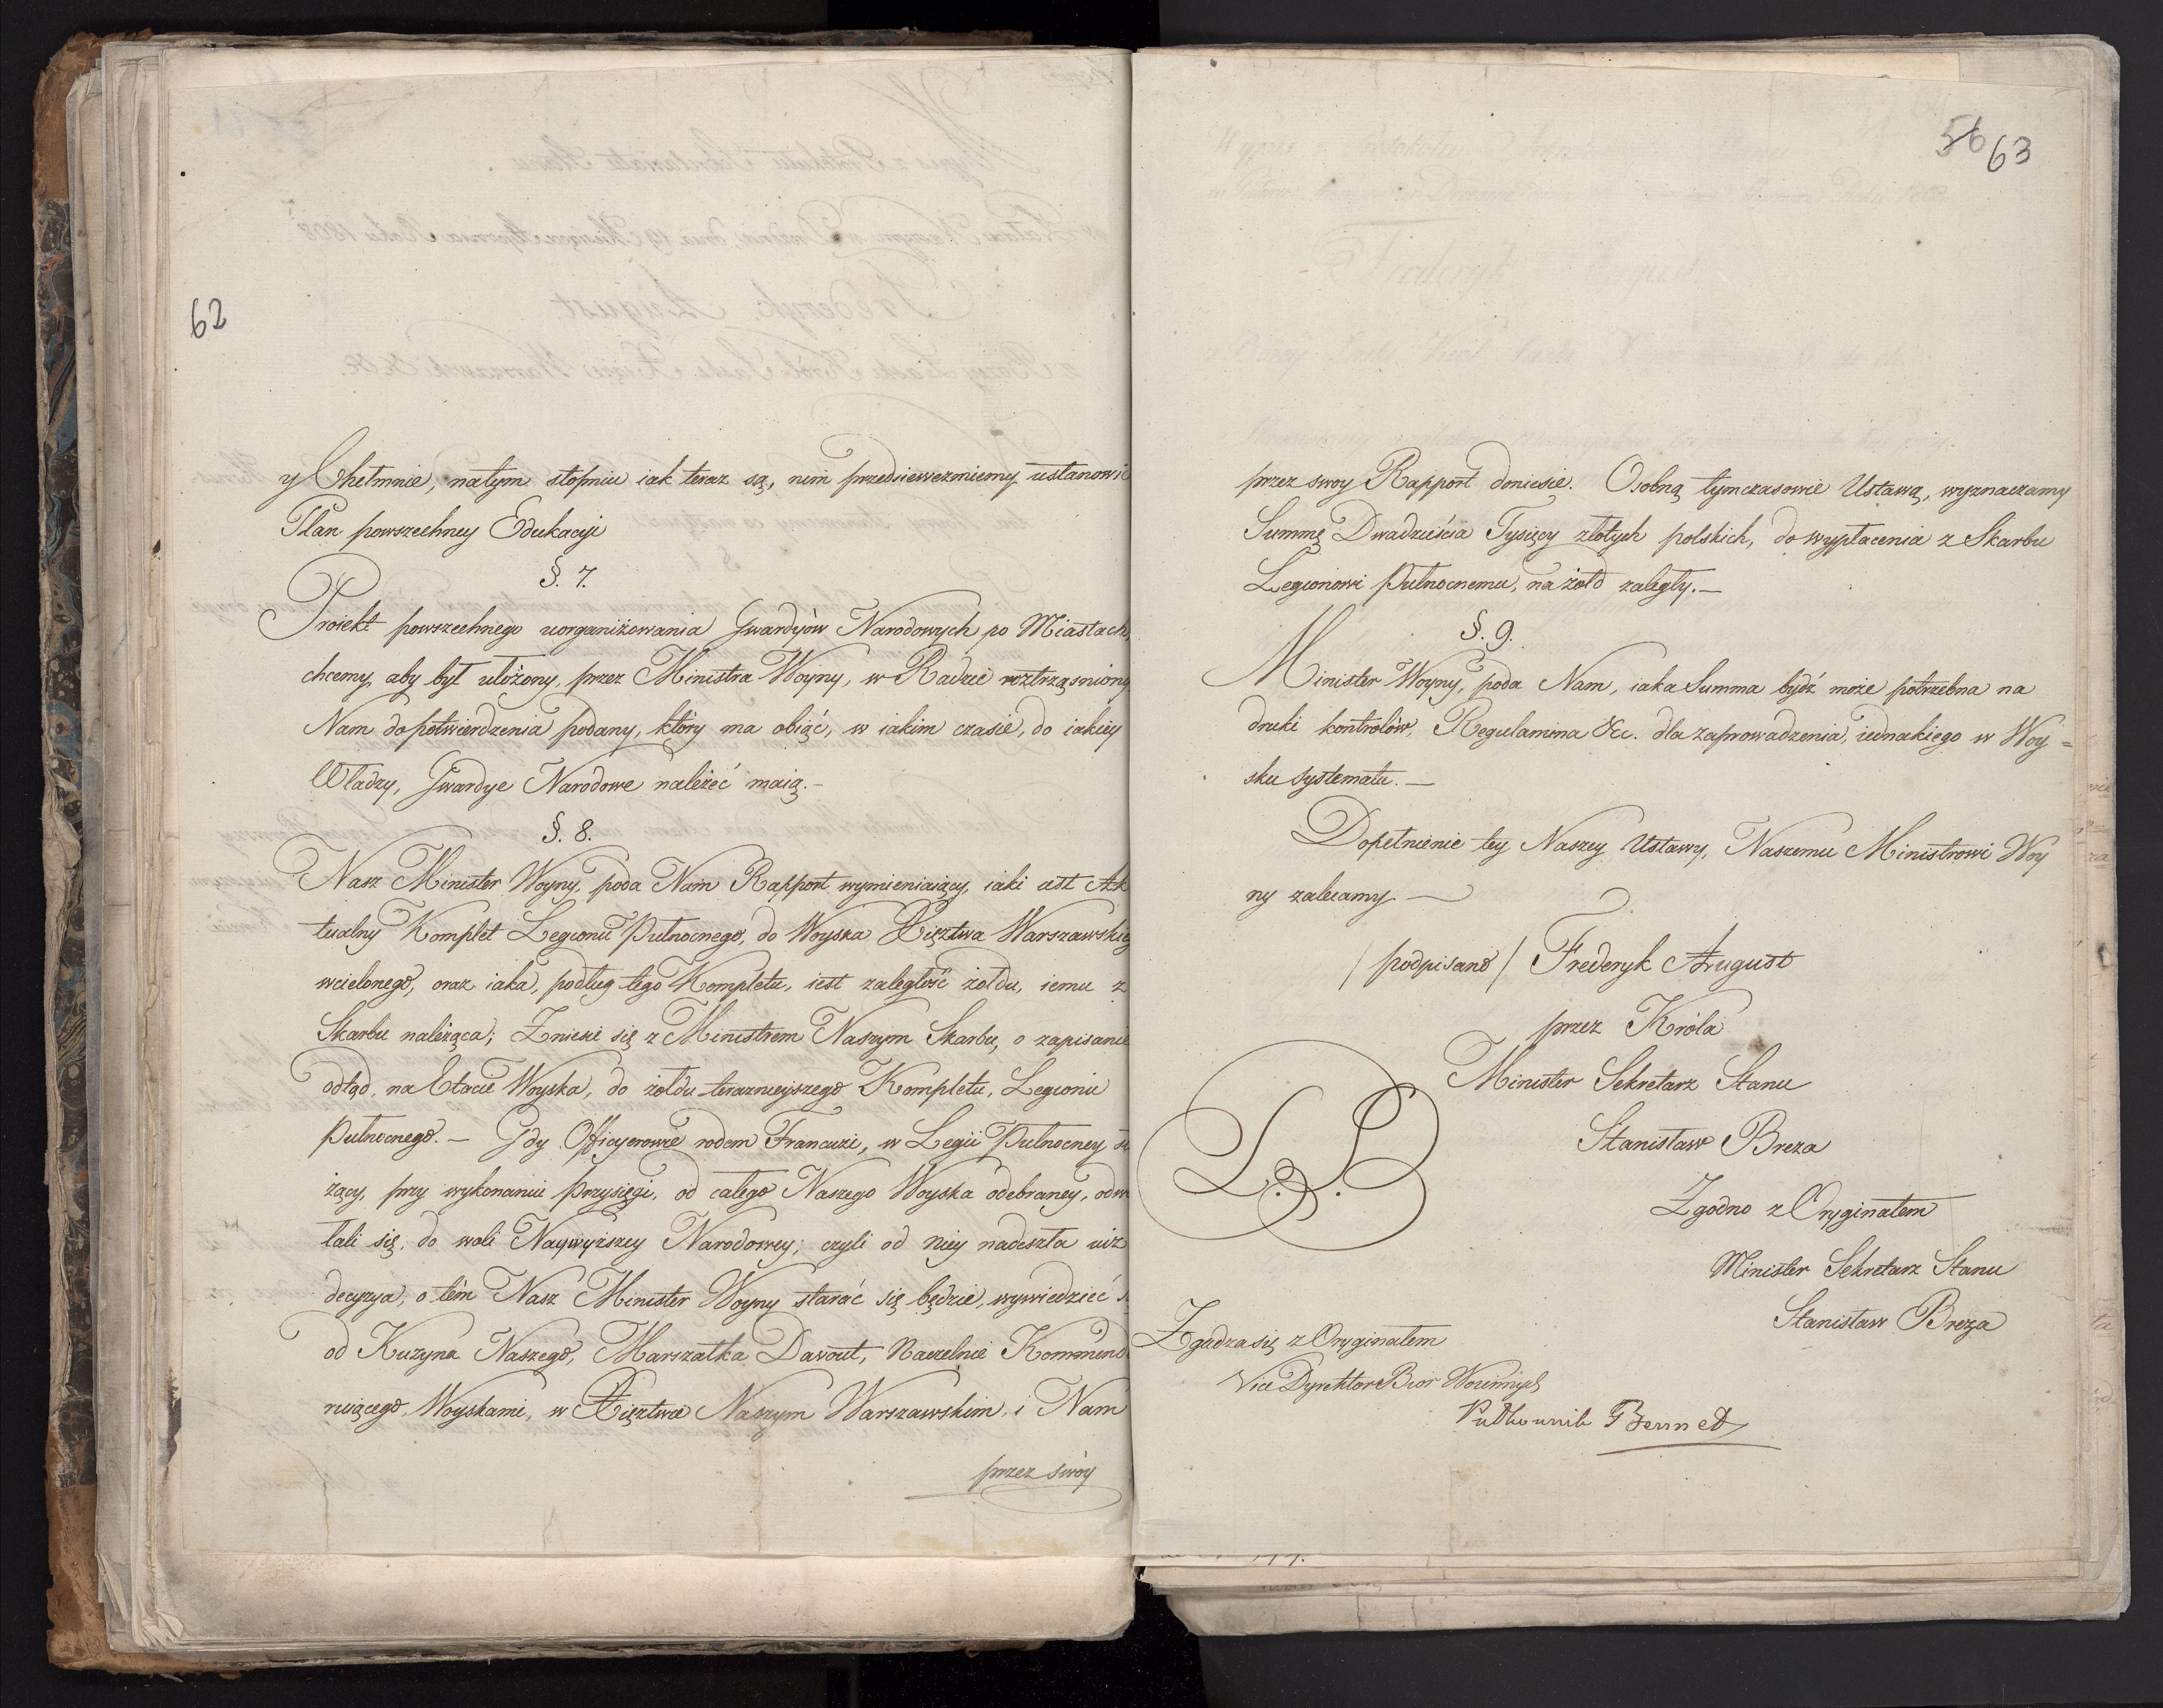 62
y Chełmnie, natym stopniu iak teraz są, nim przedsieweźmiemy ustanowić
Plan powszechney Edukacyi
§. 7.
Proiekt powszechnego uorganiżowania Gwardyów Narodowych po Miastach,
chcemy, aby był ułożony, przez Ministra Woyny, w Radzie roztrząśniony
Nam do potwierdzenia podany, który ma obiąć, w iakim czasie, do iakiey
Władzy, Gwardye Narodowe należeć maią.-
§. 8.
Nasz Minister Woyny, poda Nam Rapport wymieniaiący, iaki iest Ak
tualny Komplet Legionu Pułnocnego, do Woyska Xięztwa Warszawskieg
wcielonego, oraz iaka, podług tego Kompletu, iest zaległość żołdu, iemu z
Skarbu należąca; Zniesie się z Ministrem Naszym Skarbu, o zapisanie
odtąd, na Etacie Woyska, do żołdu terazniejszego Kompletu, Legionu
Pułnocnego.- Gdy Officyerowie rodem Francuzi, w Legii Pułnocney
żący, przy wykonaniu Przysięgi, od całego Naszego Woyska odebraney, odw
łali się, do woli Naywyższey Narodowey; czyli od niey nadeszła iuż
decyzya, o tém Nasz Minister Woyny starać się będzie, wywiedzieć s
od Kuzyna Naszego, Marszałka Davout, Naczelnie Kommend
ruiącego, Woyskami, w Xięztwie Naszym Warszawskim, i Nam
przez swóy
56 63
przez swoy Rapport doniesie. Osobną tymczasowie Ustawą, wyznaczamy
Summę Dwadzieścia Tysięcy złotych polskich, do wypłacenia z Skarbu
Legionowi Pułnocnemu, na żołd zaległy.-
§. 9.
Minister Woyny, poda Nam, iaka Summa bydź może potrzebna na
druki kontrolów, Regulamina &c. dla zaprowadzenia, iednakiego w Woy=
sku systematu.-
Dopełnienie tey Naszey Ustawy, Naszemu Ministrowi Woy
ny zalecamy.-
/podpisano/ Frederyk August
przez Króla
Minister Sekretarz Stanu
L.S.
Stanisław Breza
Zgodno z Oryginałem
Minister Sekretarz Stanu
Stanisław Breza
Zgadza się z Oryginałem
Vice Dyrektor Biór Woiennych
Pułkownik Bennet